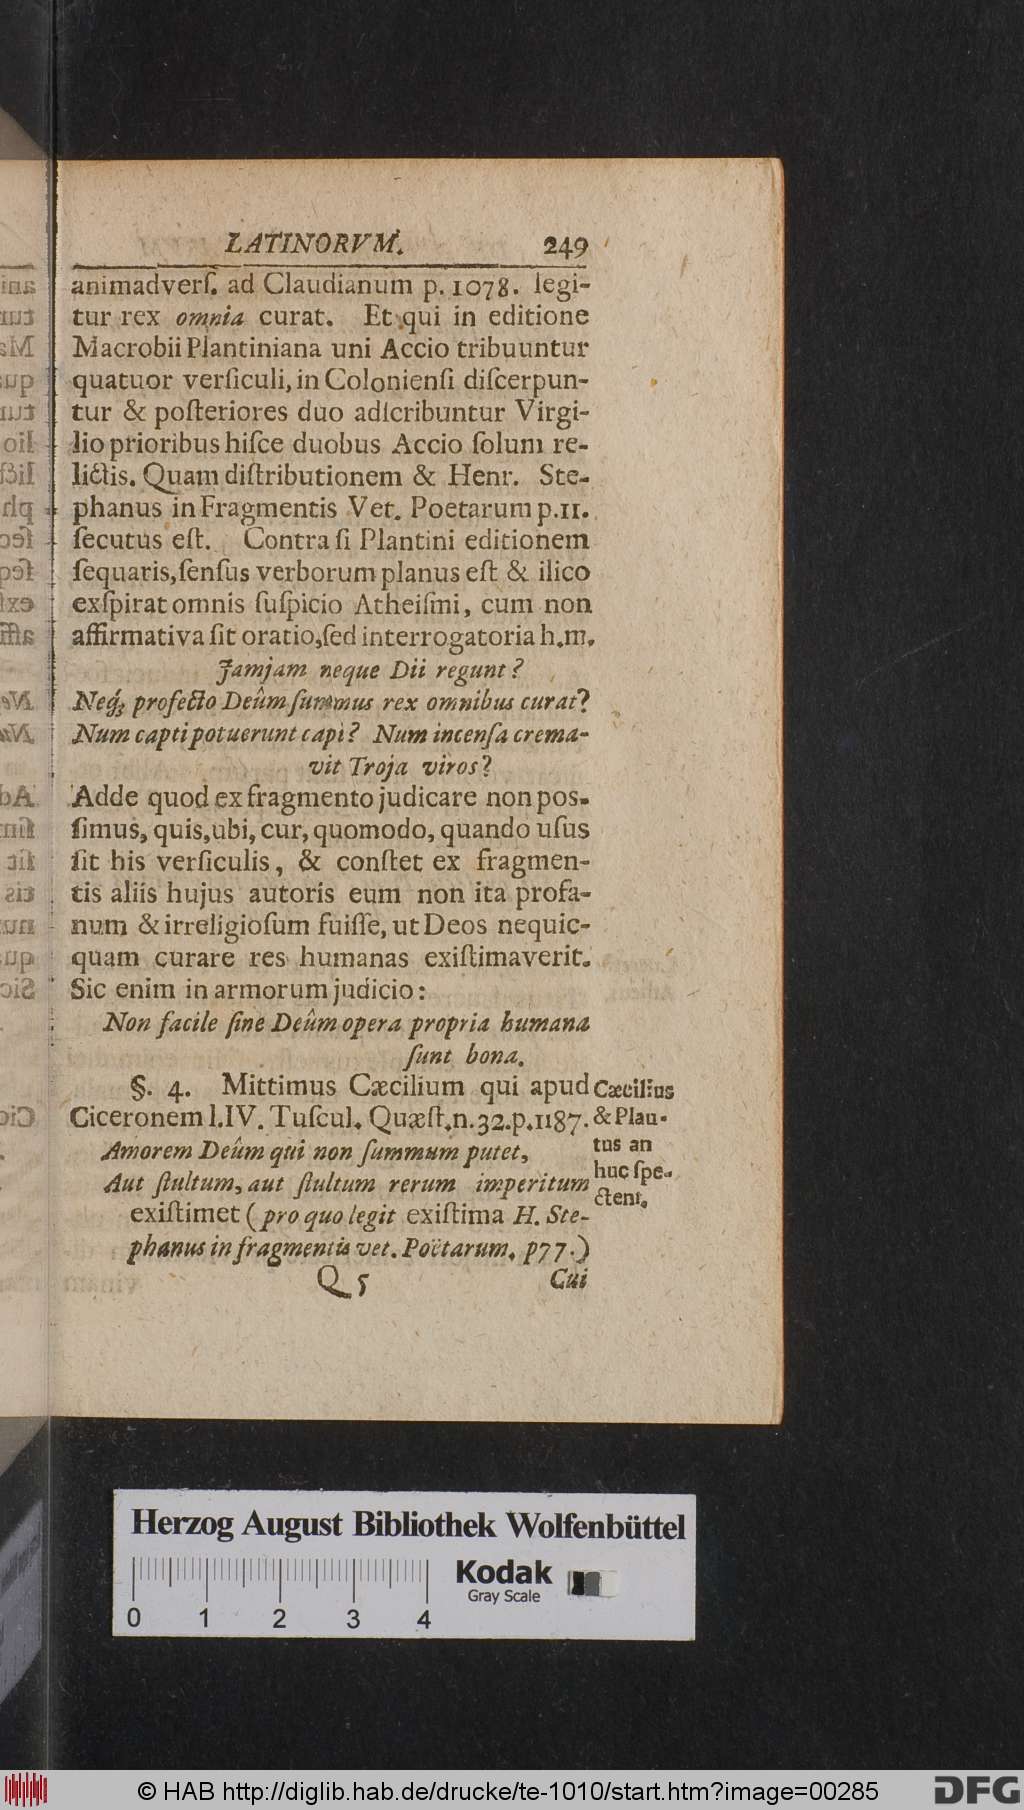 LATINORVM. 249
animadverſ. ad Claudianum p. 1078. legi-
tur rex omnia curat. Et qui in editione
Macrobii Plantiniana uni Accio tribuuntur
quatuor verſiculi, in Colonienſi diſcerpun-
tur & poſteriores duo adſcribuntur Virgi-
lio prioribus hiſce duobus Accio ſolum re-
lictis. Quam diſtributionem & Henr. Ste-
phanus in Fragmentis Vet. Poetarum p. 11.
ſecutus eſt. Contra ſi Plantini editionem
ſequaris, ſenſus verborum planus eſt & ilico
exſpirat omnis ſuſpicio Atheiſmi, cum non
affirmativa ſit oratio, ſed interrogatoria h. m.
Jamjam neque Dii regunt?
Neq́; profecto Deûm ſummus rex omnibus curat?
Num capti potuerunt capi? Num incenſa crema-
vit Troja viros?
Adde quod ex fragmento judicare non pos-
ſimus, quis, ubi, cur, quomodo, quando uſus
ſit his verſiculis, & conſtet ex fragmen-
tis aliis hujus autoris eum non ita profa-
num & irreligioſum fuiſſe, ut Deos nequic-
quam curare res humanas exiſtimaverit.
Sic enim in armorum judicio:
Non facile ſine Deûm opera propria humana
ſunt bona.
§. 4. Mittimus Cæcilium qui apud
Ciceronem l. IV. Tuſcul. Quæſt. n. 32. p. 1187.
Amorem Deûm qui non ſummum putet,
Aut ſtultum, aut ſtultum rerum imperitum
exiſtimet (pro quo legit exiſtima H. Ste-
phanus in fragmentis vet. Poëtarum. p 77.)
Q 5 Cui
Cæcilius
& Plau-
tus an
huc ſpe-
ctent.
Herzog August Bibliothek Wolfenbüttel
Kodak
Gray Scale
0 1 2 3 4
© HAB http://diglib.hab.de/drucke/te-1010/start.htm?image=00285
DFG